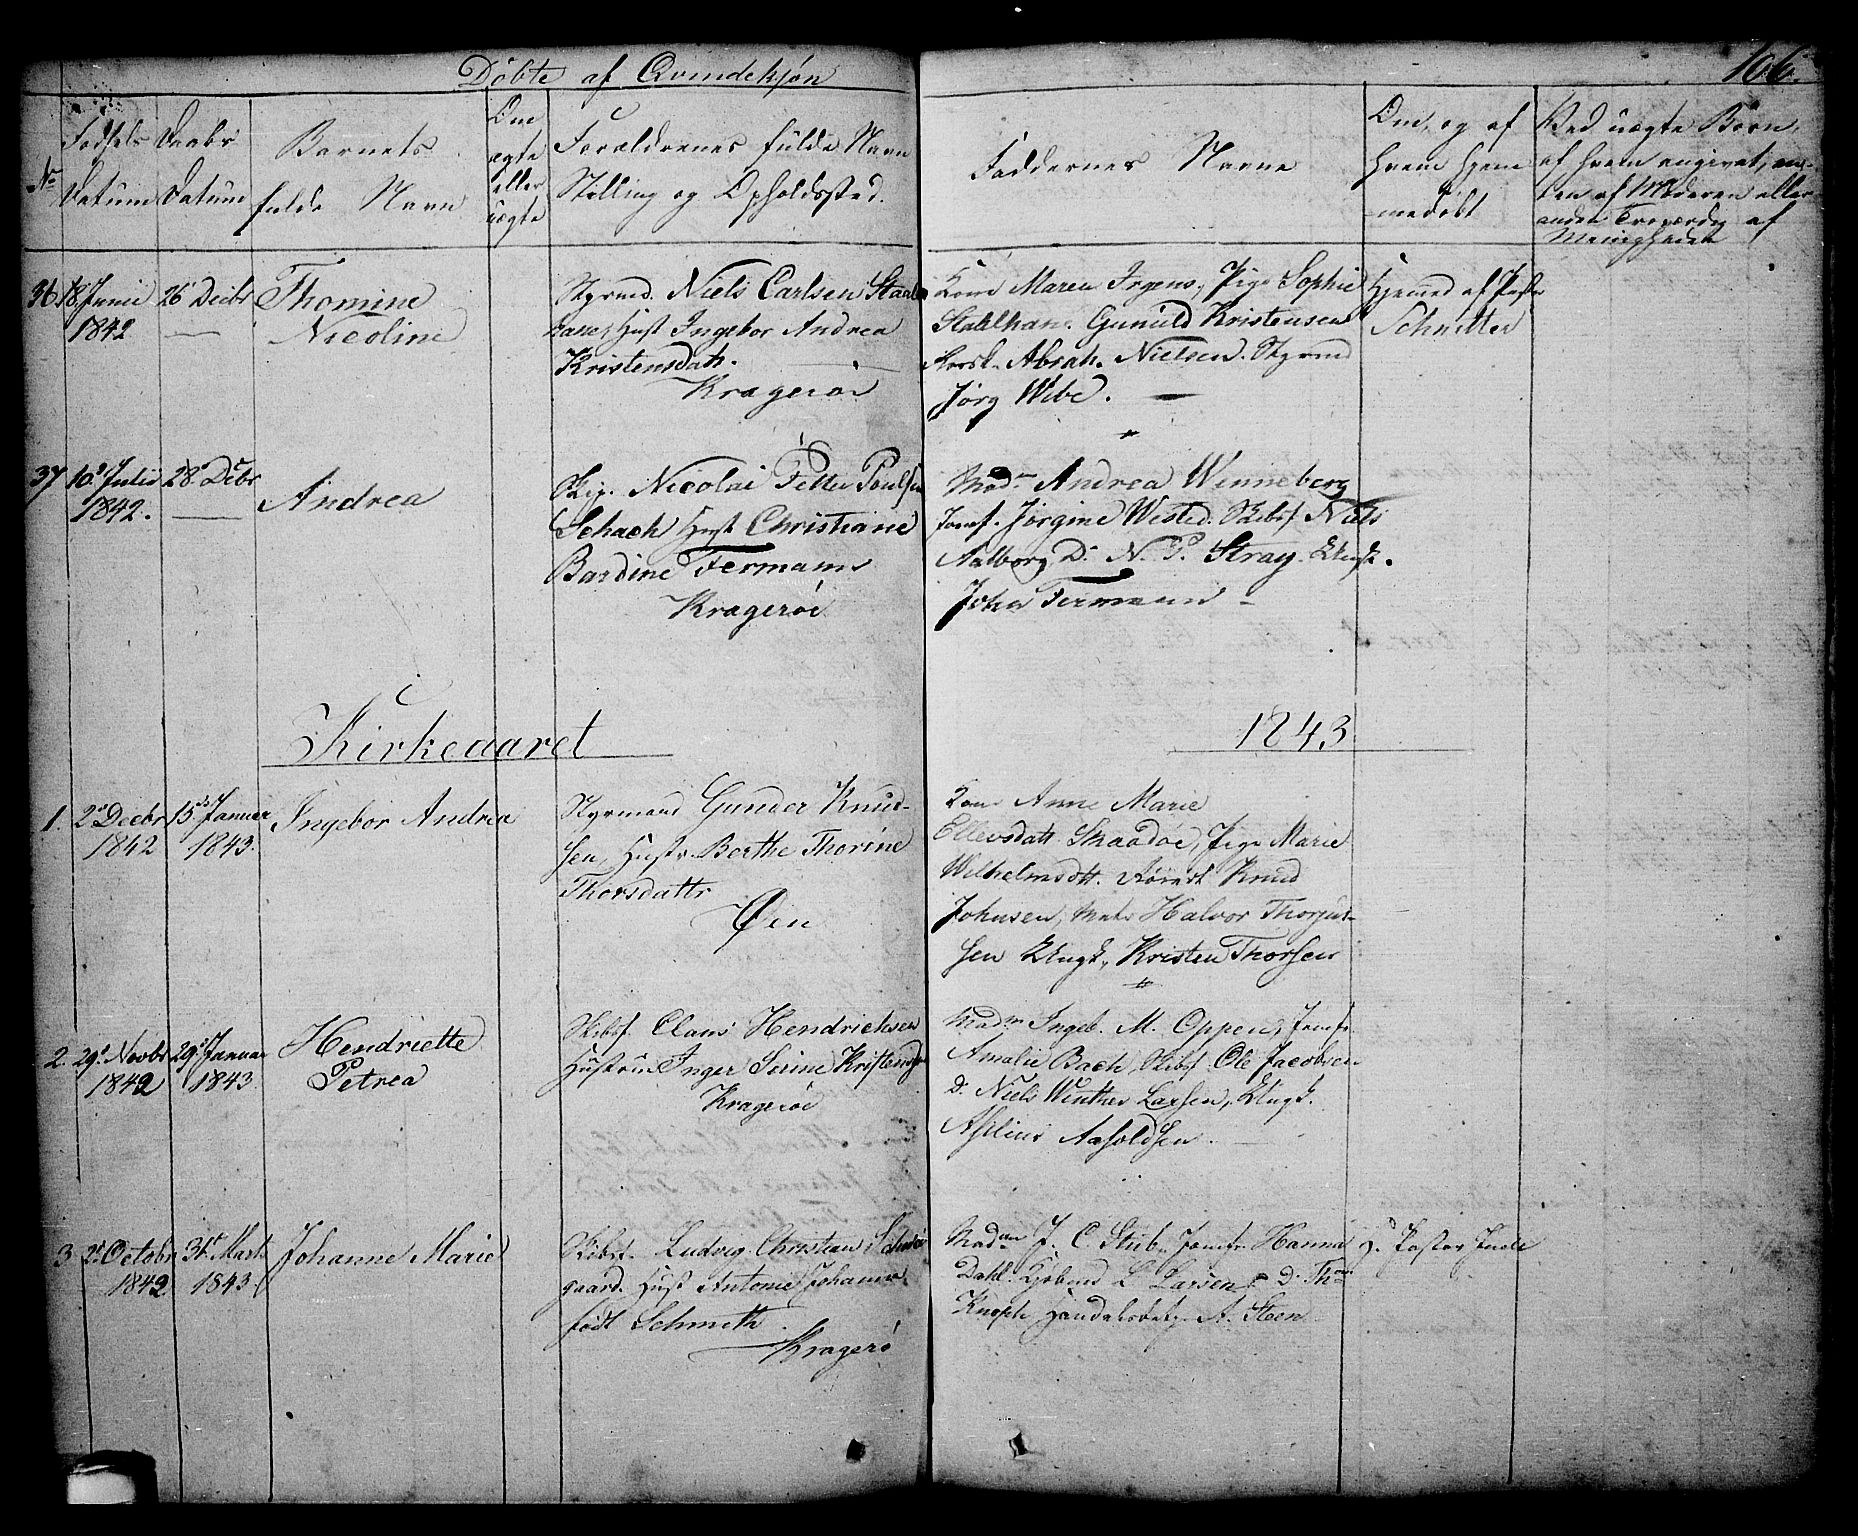 Döbte af Qvindekjøn
106.
No
Fødsels Datum
Daabs Datum
Barnets fulde Navn
Om ægte eller uægte
Forældrenes fulde Navn
Stilling og Opholdssted.
Faddernes Navne
Om, og af hvem hjemmedøbt
Ved uægte Børn,
af hvem angivet, en-
ten af Moderen eller
anden Troværdig af
Menigheden
36. 18 Junii 1842
26 Decbr —
Thomine
Nicoline
Styrmd. Niels Carlsen
Hust Ingebor Andrea
Kristensdatr.
Kragerøe
Kone Maren Irgens, Pige Sophie
Gunild Kristensen
Abrah. Nielsen. Styrmd
Jørg Wibe.
Hjemmed af Pastor
Schnitter
37 10 Julii 1842.
28 Decbr —
Andrea
Skip. Nicolai Petter Poulsen
Schach Hust Christiane
Bardine Fermann
Kragerøe
Madm Andrea Winneberg
Jomf. Jørgine Wested. Skibsf Niels
Aalborg, Do N. P. Stray. Ungk.
John Fermann
Kirkeaaret 1843
1. 2 Decbr 1842
15 Januar 1843.
Ingebor Andrea
Styrmand Gunder Knud-
sen, Hustr. Berthe Thorine
Thorsdattr
Øen
Kone Anne Marie
Ellevsdatt. Skaadøe, Pige Marie
Wilhelmsdtt. Knud
Johnsen, Mats Halvor Thorjus-
sen Ungk. Kristen Thorsen
2. 29 Novbr 1842
29 Januar 1843
Hendriette
Petrea
Skibsf Claus Hendrichsen
Hustrue Inger Serine
Kragerøe
Madm Ingeb. M. Oppen, Jomfr
Amalie Bach, Skibsf Ole Jacobsen
D. Niels Winther Larsen, Ungk.
Asilius Aasoldsen
3 2 Octobr 1842
31 Marts 1843
Johanne Marie
Skibsf. Ludvig Christian
gaard. Hust Antonie Johanne
født Schmith
Kragerø
Madm J. C Stub. Jomfr Hanna
Dahl. Kjøbmd L Larsen D. Thom
Knoph Handelsbetj. A. Steen
H. Pastor